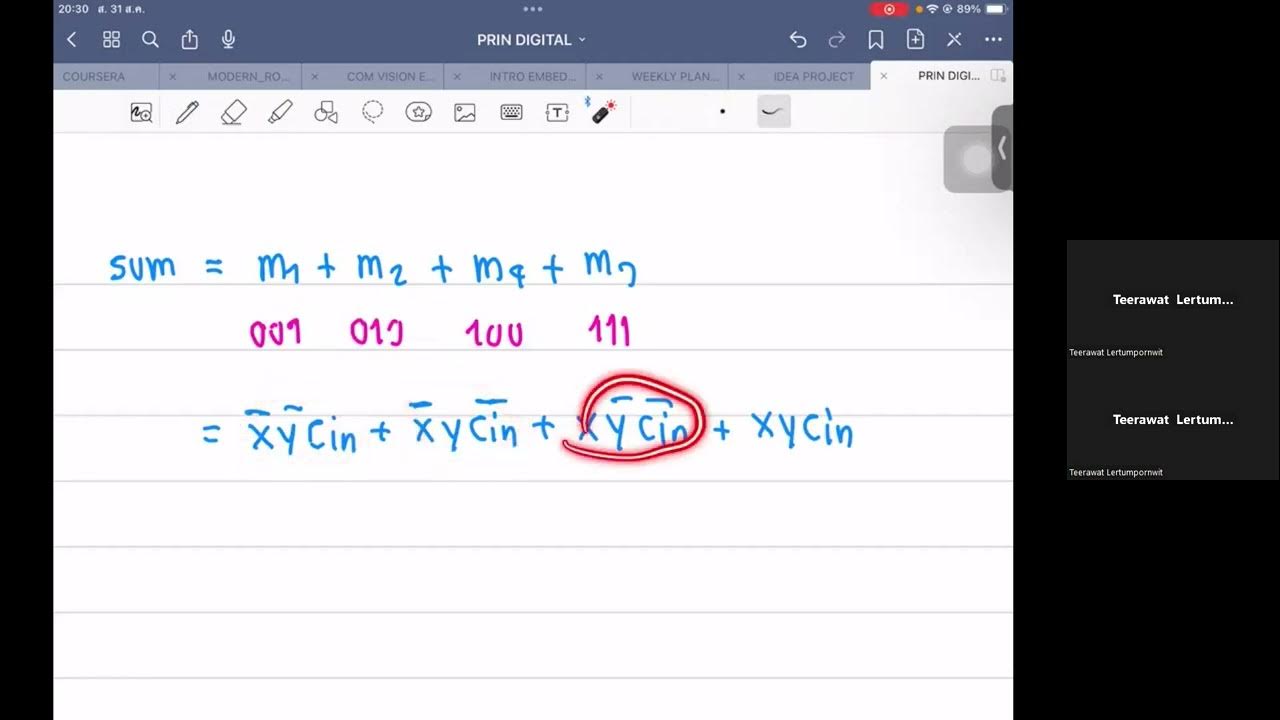 20:30 ส. 31 ส.ค.
89%
PRIN DIGITAL
COURSERA
MODERN_RO...
COM VISION E...
INTRO EMBED...
WEEKLY PLAN...
IDEA PROJECT
PRIN DIGI...
sum = m₁ + m₂ + m₄ + m₇
001 010 100 111
= x̅ y̅ Cin + x̅ y C̅i̅n̅ + x y̅ C̅i̅n̅ + x y Cin
Teerawat Lertum...
Teerawat Lertumpornwit
Teerawat Lertum...
Teerawat Lertumpornwit